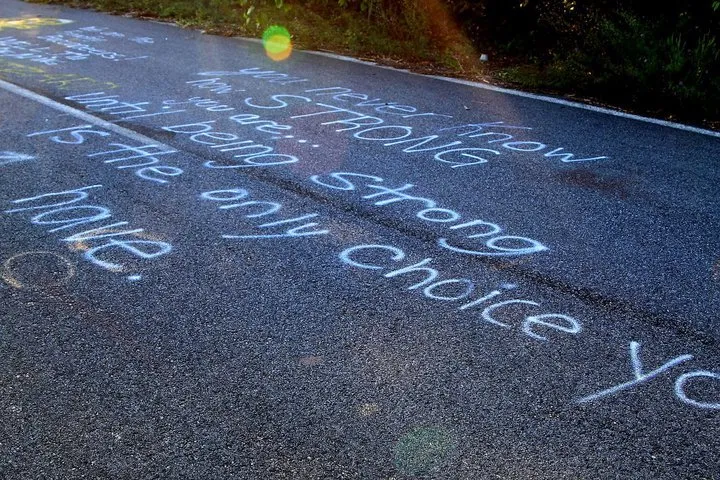 you never know
how STRONG
you are...
until being strong
is the only choice yo
have.